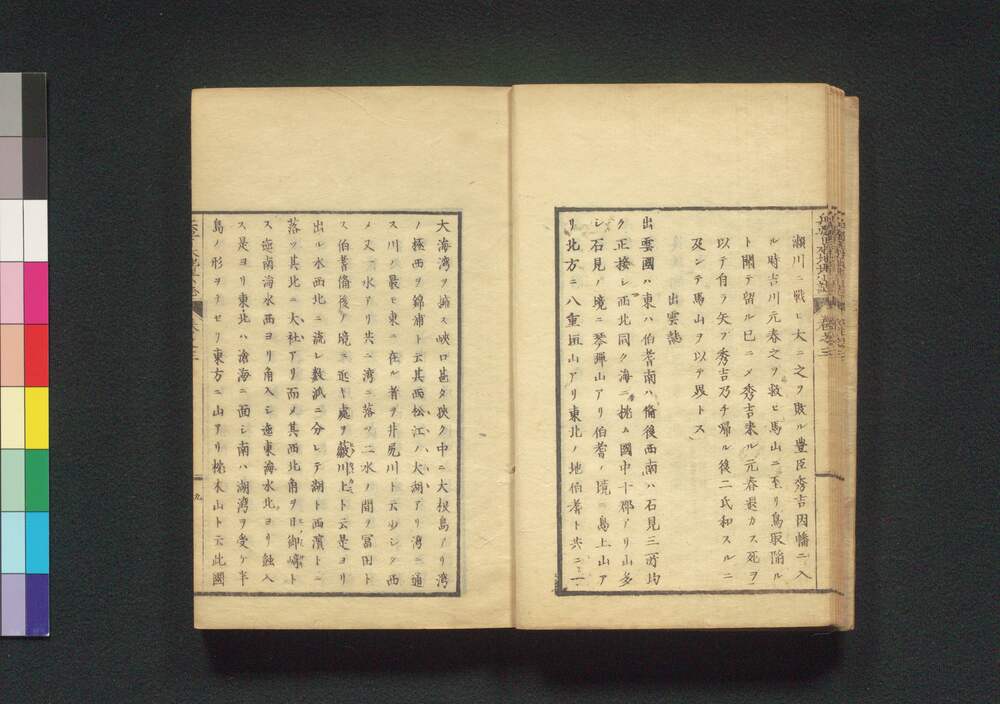 瀬川ニ戰ヒ大ニ之ヲ敗ル豊臣秀吉因幡ニ入
ル時吉川元春之ヲ救ヒ馬山ニ至リ鳥取陥ル
ト聞テ留ル巳ニメ秀吉来ル元春退カス死ヲ
以テ自ラ矢フ秀吉乃チ帰ル後二氏和スルニ
及ンテ馬山ヲ以テ界トス
出雲誌
出雲國ハ東ハ伯耆南ハ備後西南ハ石見三所均
ク正接シ西北同ク海ニ挑ム國中十郡アリ山多
シ石見ノ境ニ琴弾山アリ伯耆ノ境ニ島上山ア
リ北方ニ八重垣山アリ東北ノ地伯耆ト共ニ一
大海湾ヲ擁ス峡口甚タ狭ク中ニ大根島アリ湾
ノ極西ヲ錦浦ト云其西松江ノ大湖アリ湾ニ通
ス川ノ最モ東ニ在ル者ヲ井尻川ト云少シク西
メ又一水アリ共ニ湾ニ落ツ二水ノ間ヲ冨田ト
ス伯耆備後ノ境ニ近キ處ヲ簸川上ト云是ヨリ
出ル水西北ニ流レ数派ニ分レテ湖ト西濱トニ
落ツ其北ニ大社アリ而メ其西北角ヲ日御崎ト
ス迤南海水西ヨリ角入シ迤東海水北ヨリ蝕入
ス是ヨリ東北ハ滄海ニ面シ南ハ湖湾ヲ受ケ半
島ノ形ヲナセリ東方ニ山アリ桃木山ト云此國
九